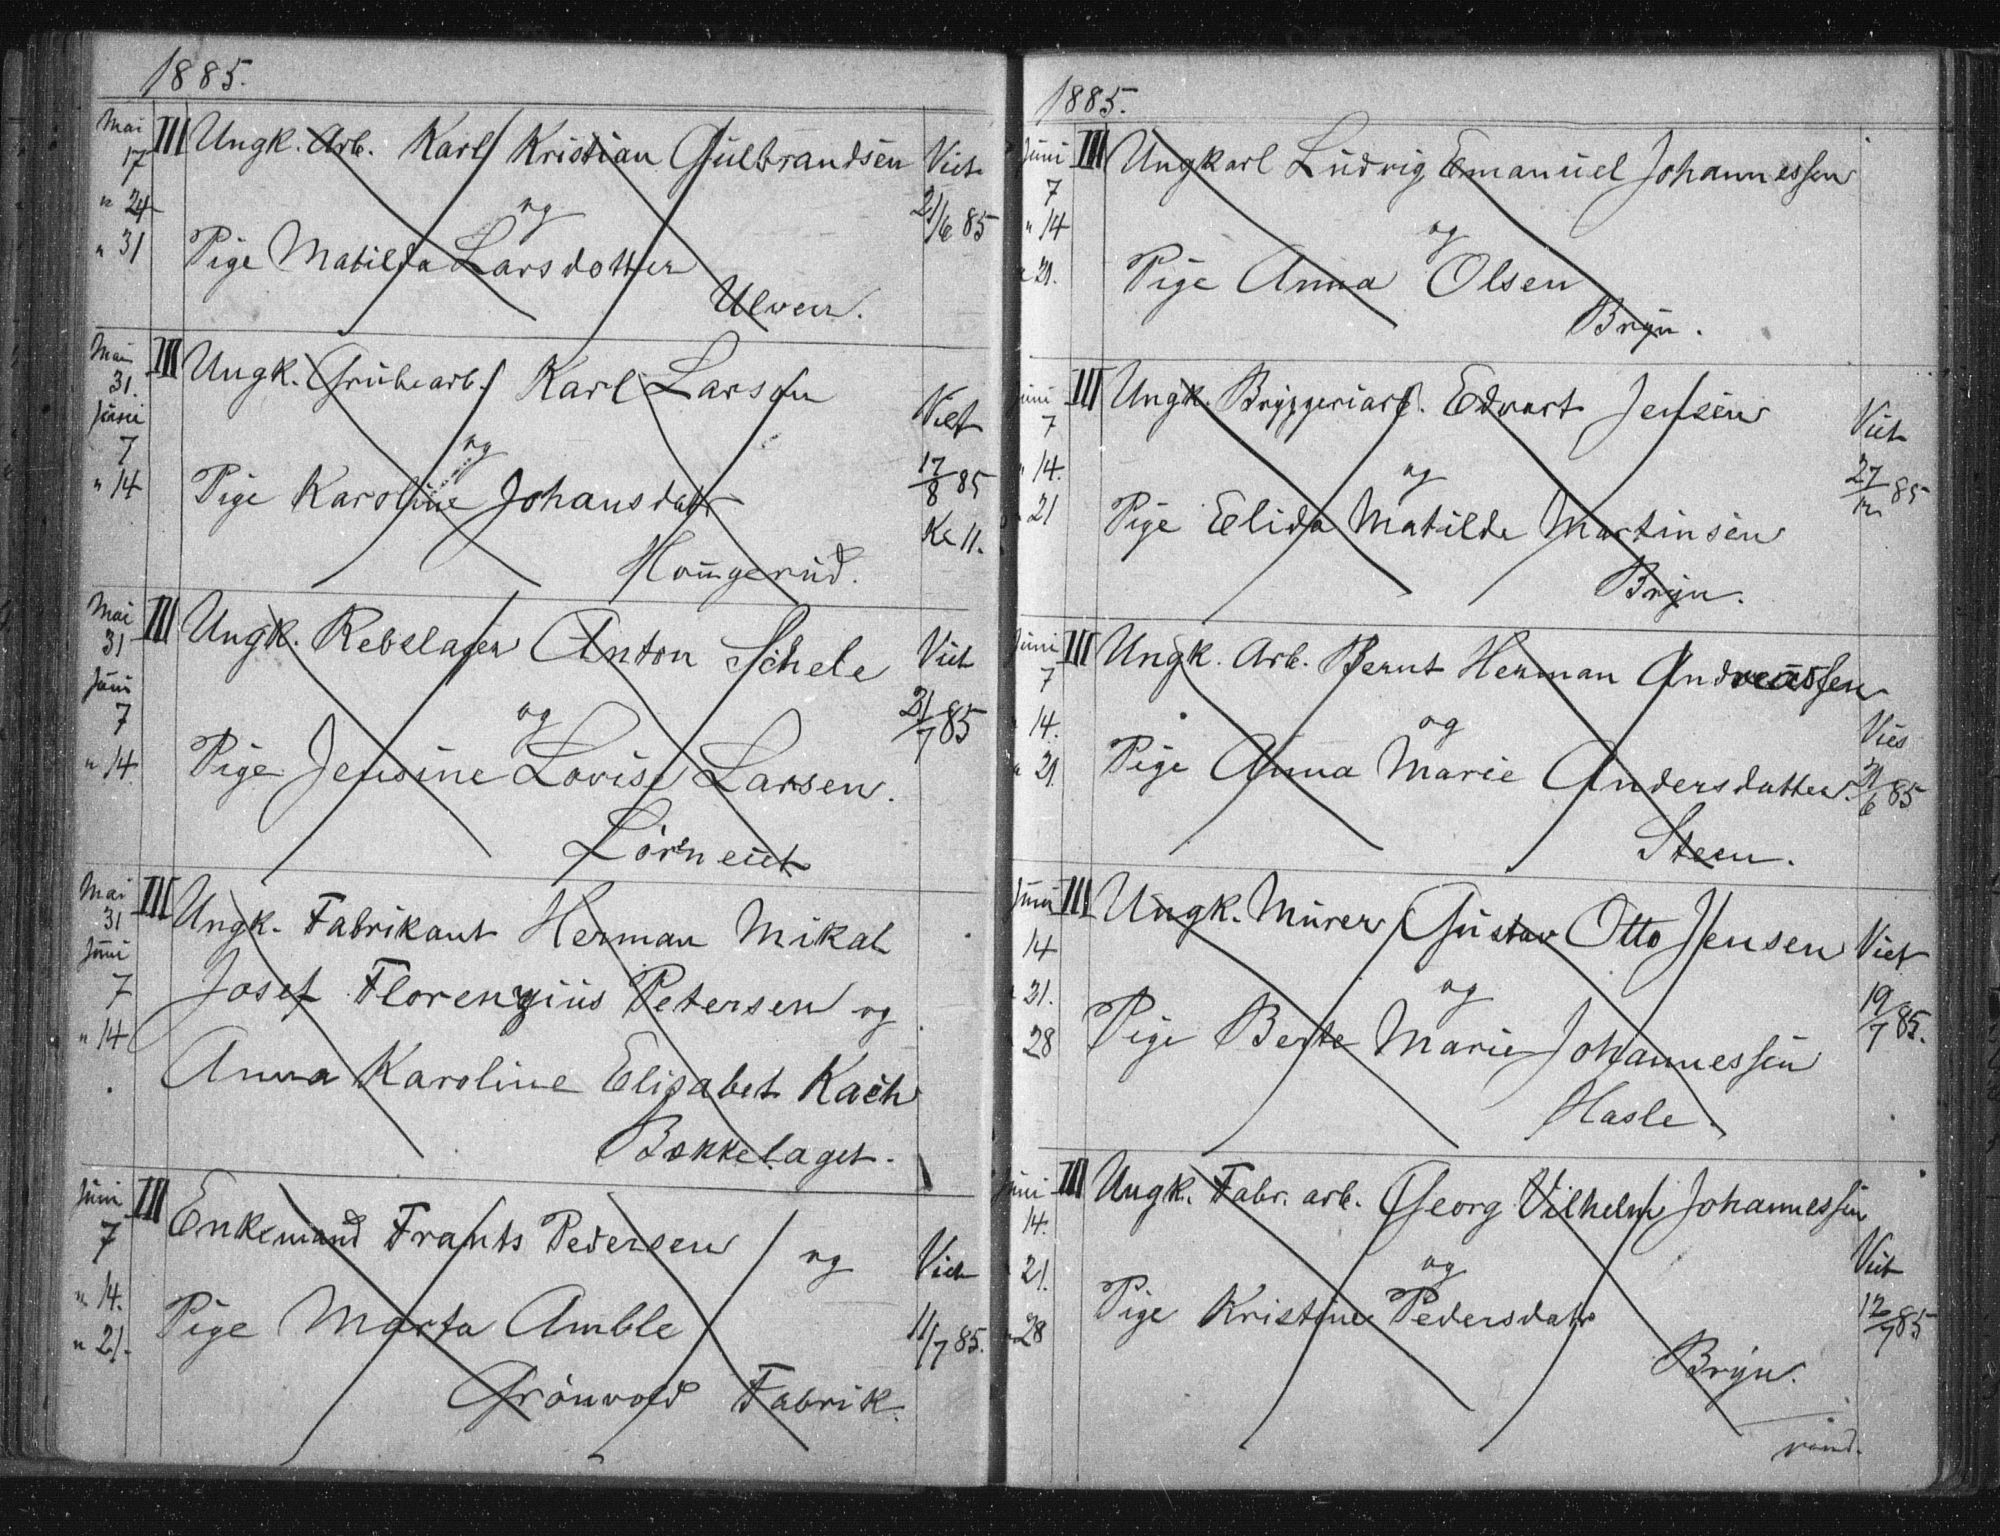 1885.
Mai 17 III Ungk. Arb. Karl Kristian Gulbrandsen Viet
" 24 og 21/6 85
" 31 Pige Matilda Larsdotter
Ulven.
Mai 31. III Ungk. Grubearb. Karl Larsen Viet
Juni 7 og 17/8 85
" 14 Pige Karoline Johansdatr Kl 11.
Haugerud.
Mai 31 III Ungk. Rebslager Anton Schele Viet
Juni 7 og 21/7 85
" 14. Pige Jensine Lovise Larsen.
Mai 31 III Ungk. Fabrikant Herman Mikal
Juni 7 Josef Florenzius Petersen og
" 14 Anna Karoline Elisabet Kach
Bækkelaget.
Juni 7 III Enkemand Frants Pedersen og Viet
" 14. Pige Marta Amble 11/7 85.
" 21. Grönvold Fabrik.
1885.
Juni 7 III Ungkarl Ludvig Emanuel Johannessen
" 14 og
" 21. Pige Anna Olsen
Bryn.
Juni 7 III Ungk. Bryggeriarb. Edvart Jensen Viet
" 14. og 27/12 85
" 21 Pige Elida Matilde Martinsen
Bryn.
Juni 7 III Ungk. Arb. Bernt Herman Andreassen
" 14. og Vies
" 21. Pige Anna Marie Andersdatter. 21/6 85
Steen.
Juni 14 III Ungk. Murer Gustav Otto Jensen Viet
" 21. og 19/7 85.
" 28 Pige Berte Marie Johannessen
Hasle.
Juni 14. III Ungk. Fabr. arb. Georg Vilhelm Johannessen
" 21. og Viet
" 28 Pige Kristine Pedersdatr 12/7 85
Bryn.